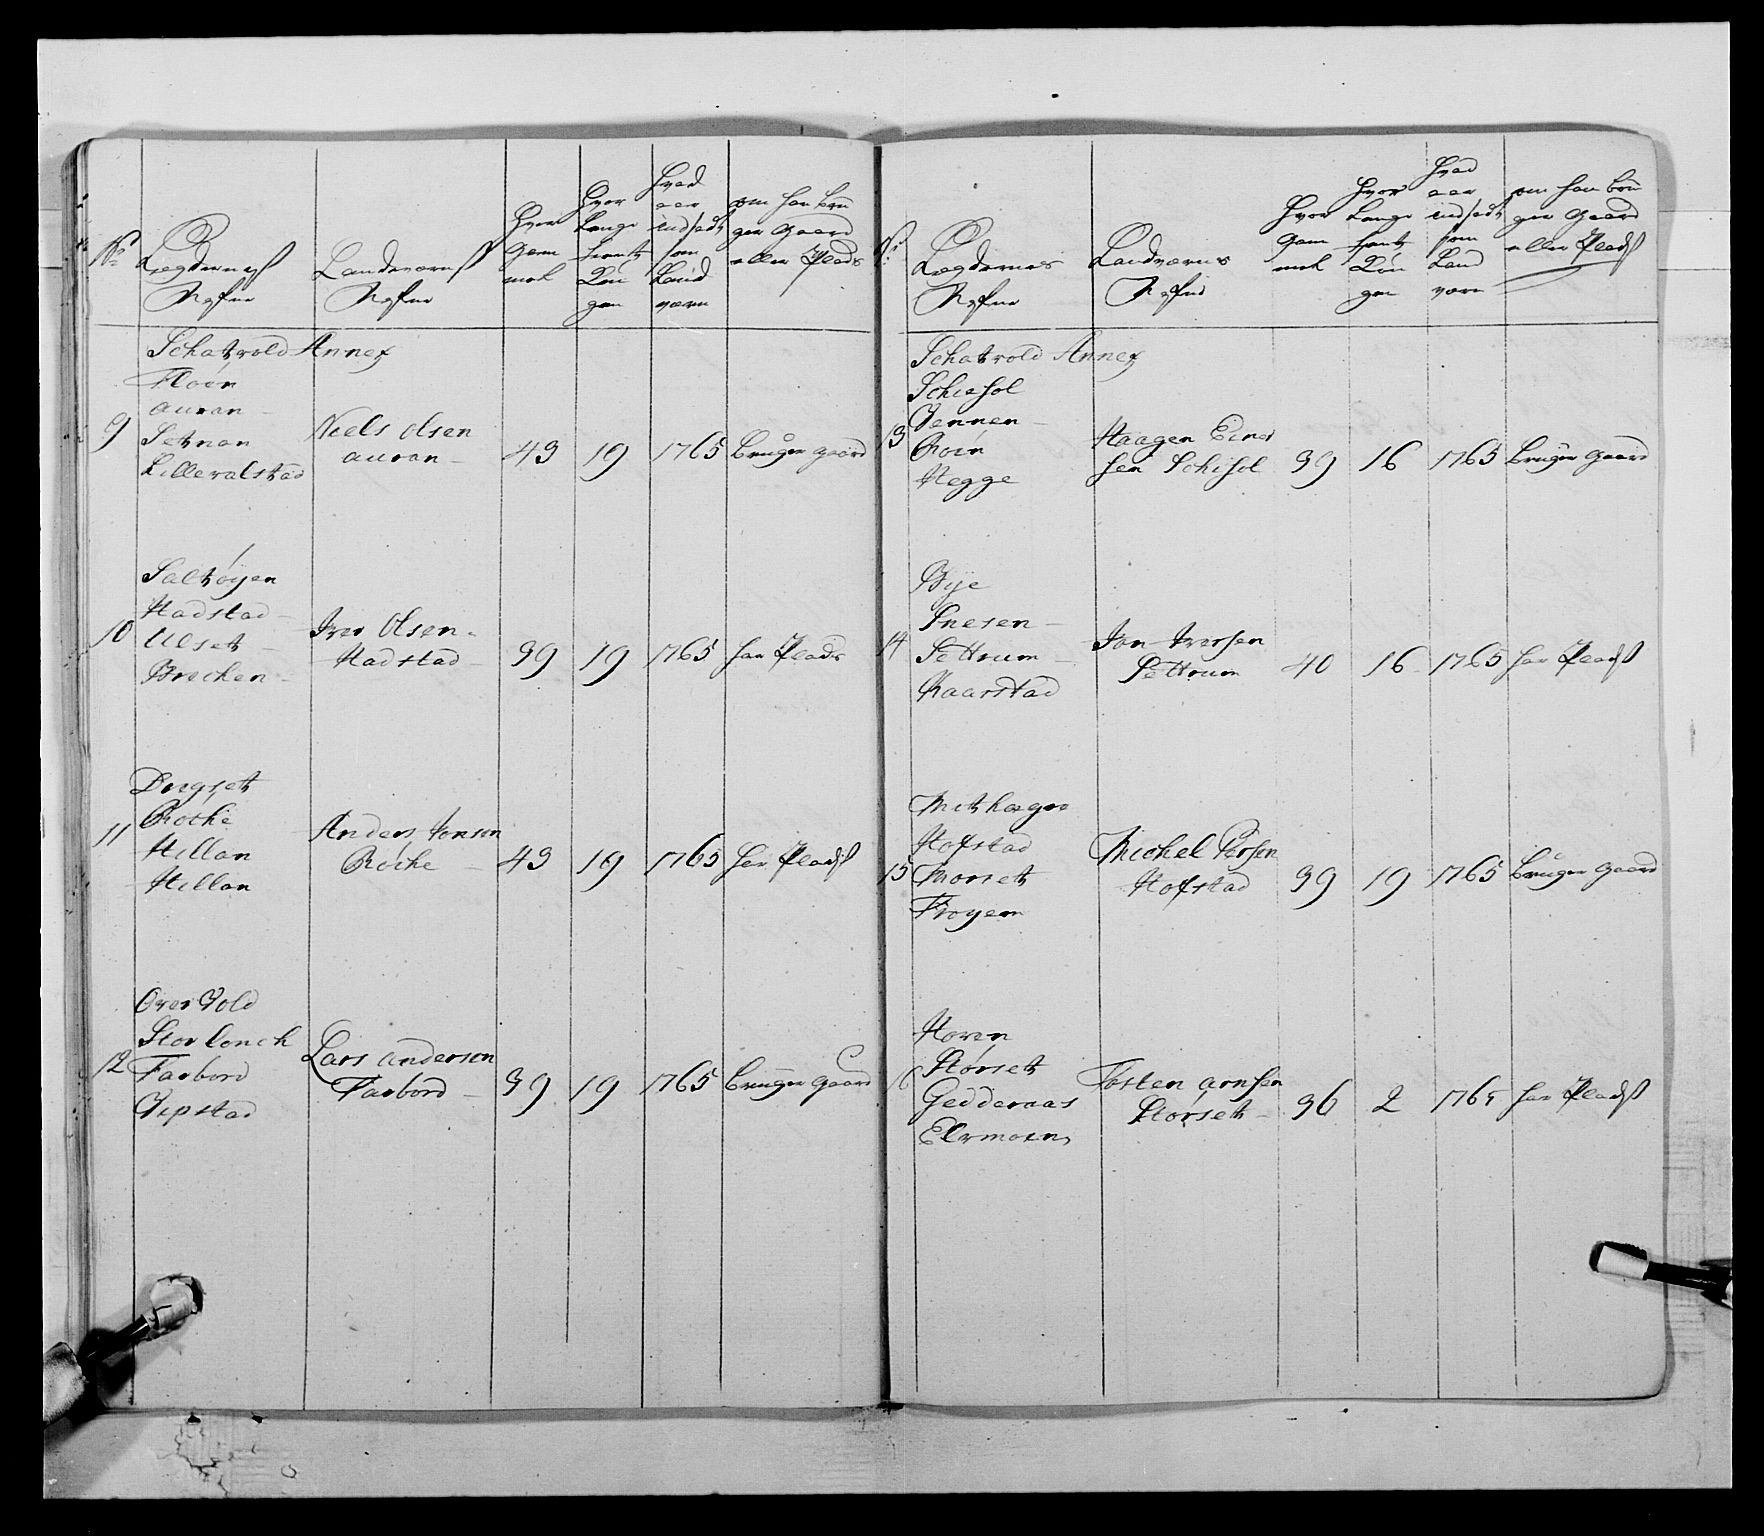 No
Lægdernes
Nafne
Landværns
Nafne
Hvor
Gam
mel
Hvor
Lenge
tient
Kon
gen
Hvad
aar
indsadt
som
Land
værn
om han bru
ger Gaard
eller Plads
Schatvold Annex
Floen
auran
9 Setnan
Lillevalstad
Niels Olsen
auran
43 19 1765 Bruger gaard
Saltøyen
Hadstad
10 Ulset
Brecken
Iver Olsen
Hadstad
39 19 1765 har Plads
Dregset
Rothe
11 Hillan
Hillan
Anders Jonsen
Rothe
43 19 1765 har Plads
Over Vold
Stor
12 Farbord
Vipstad
Lars andersen
Farbord
39 19 1765 bruger gaard
No
Lægdernes
Nafne
Landværns
Nafne
Hvor
Gam
mel
Hvor
Lenge
tient
Kon
gen
Hvad
aar
indsadt
som
Land
værn
om han bru
ger Gaard
eller Plads
Schatvold Annex
Schiefol
Vennen
13 Roin
Hegge
Haagen Einer
sen Schifol
39 16 1765 bruger gaard
Bye
Presen
14 Settrum
Kaarstad
Jon Iversen
Settrum
40 16 1765 har Plads
Hofstad
15 Morset
Frøyem
Michel Persen
Hofstad
39 19 1765 bruger gaard
Horen
Størset
16 Gedderaas
Elvemoen
Tosten arnsen
Størset
36 2 1765 har Plads